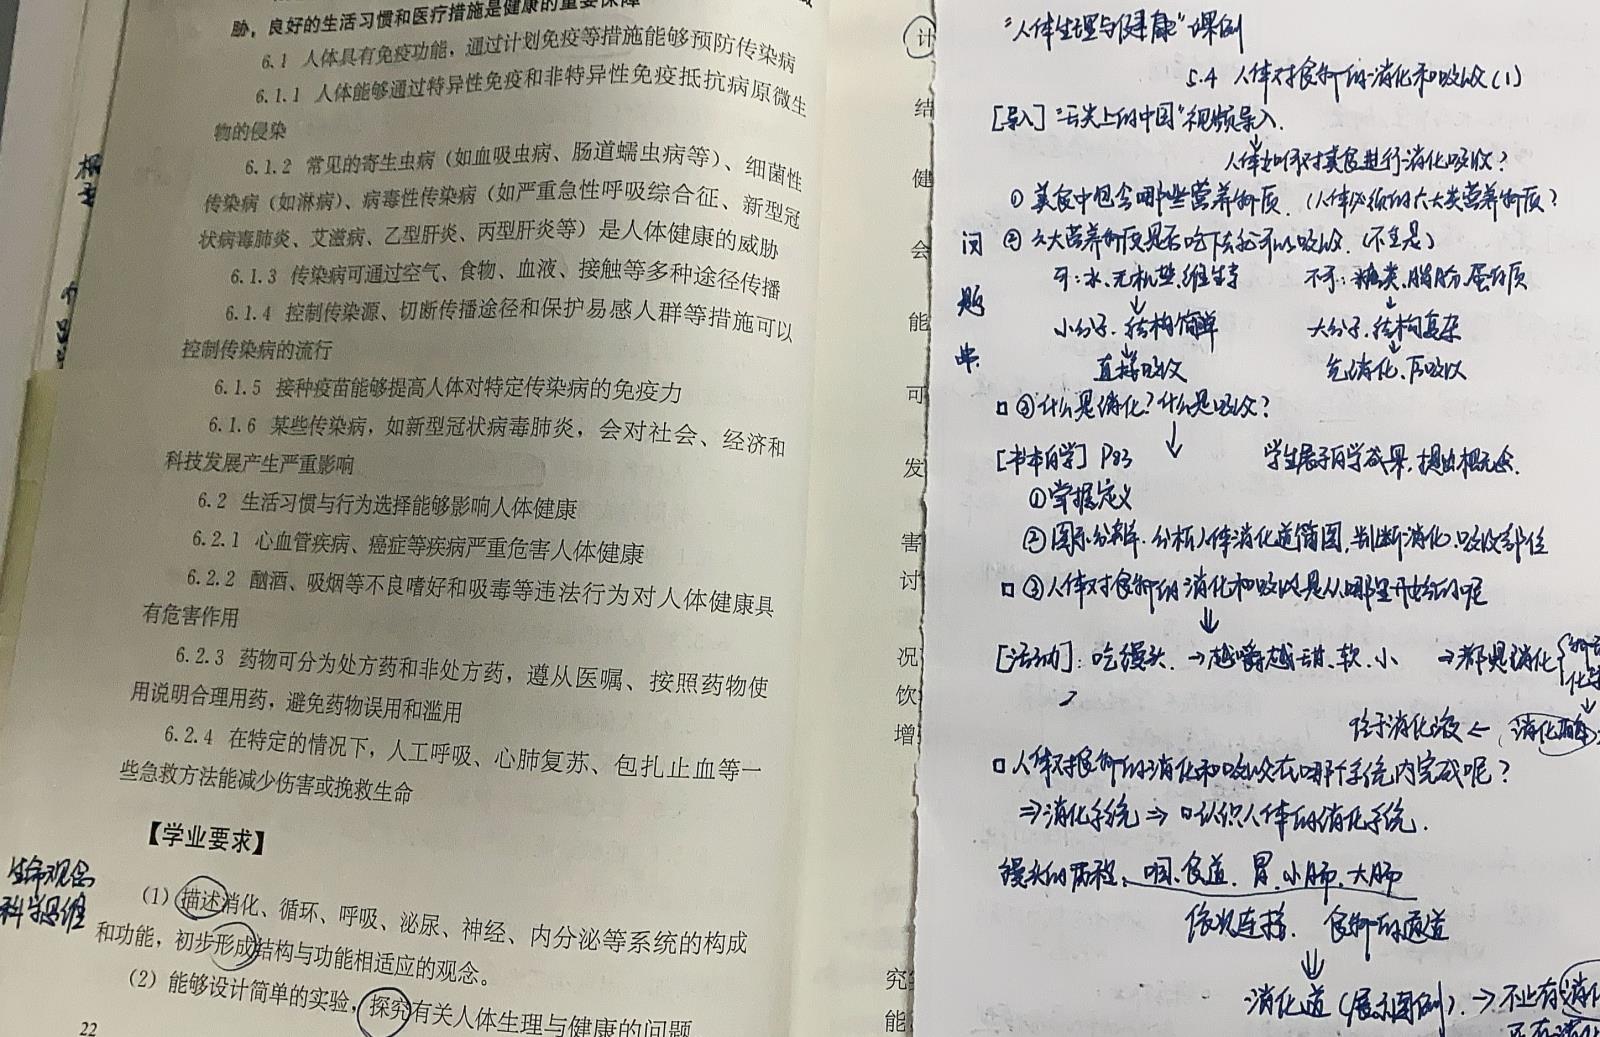 胁，良好的生活习惯和医疗措施是健康的重要保障
6.1 人体具有免疫功能，通过计划免疫等措施能够预防传染病
6.1.1 人体能够通过特异性免疫和非特异性免疫抵抗病原微生
物的侵染
6.1.2 常见的寄生虫病（如血吸虫病、肠道蠕虫病等）、细菌性
传染病（如淋病）、病毒性传染病（如严重急性呼吸综合征、新型冠
状病毒肺炎、艾滋病、乙型肝炎、丙型肝炎等）是人体健康的威胁
6.1.3 传染病可通过空气、食物、血液、接触等多种途径传播
6.1.4 控制传染源、切断传播途径和保护易感人群等措施可以
控制传染病的流行
6.1.5 接种疫苗能够提高人体对特定传染病的免疫力
6.1.6 某些传染病，如新型冠状病毒肺炎，会对社会、经济和
科技发展产生严重影响
6.2 生活习惯与行为选择能够影响人体健康
6.2.1 心血管疾病、癌症等疾病严重危害人体健康
6.2.2 酗酒、吸烟等不良嗜好和吸毒等违法行为对人体健康具
有危害作用
6.2.3 药物可分为处方药和非处方药，遵从医嘱、按照药物使
用说明合理用药，避免药物误用和滥用
6.2.4 在特定的情况下，人工呼吸、心肺复苏、包扎止血等一
些急救方法能减少伤害或挽救生命
【学业要求】
生命观念
科学思维
（1）描述消化、循环、呼吸、泌尿、神经、内分泌等系统的构成
和功能，初步形成结构与功能相适应的观念。
（2）能够设计简单的实验，探究有关人体生理与健康的问题
22
计
结
健
会
能
可
发
害
讨
况
饮
增
究
能
"人体生理与健康"课例
5.4 人体对食物的消化和吸收(1)
[导入]"舌尖上的中国"视频导入.
人体如何对美食进行消化吸收？
问题串
① 美食中包含哪些营养物质.（人体必须的六大类营养物质？
② 六大营养物质是否吃下去就可以吸收.（不全是）
可：水、无机盐、维生素 不可：糖类、脂肪、蛋白质
↓ ↓
小分子、结构简单 大分子、结构复杂
↓ ↓
直接吸收 先消化、后吸收
□ ③什么是消化？什么是吸收？
↓
[书本自学] P83 学生展示自学成果，提出概念.
①掌握定义
②图示分辨、分析人体消化道简图，判断消化、吸收部位
□ ③人体对食物的消化和吸收是从哪里开始的呢
⇓
[活动]：吃馒头. →越嚼越甜、软、小 →都是消化
位于消化液 ← (消化酶)
□ 人体对食物的消化和吸收在哪个系统内完成呢？
⇒消化系统 ⇒ 口认识人体的消化系统.
馒头的历程：咽、食道、胃、小肠、大肠
依次连接. 食物的通道
⇓
消化道（展示图例）. → 不止有消化